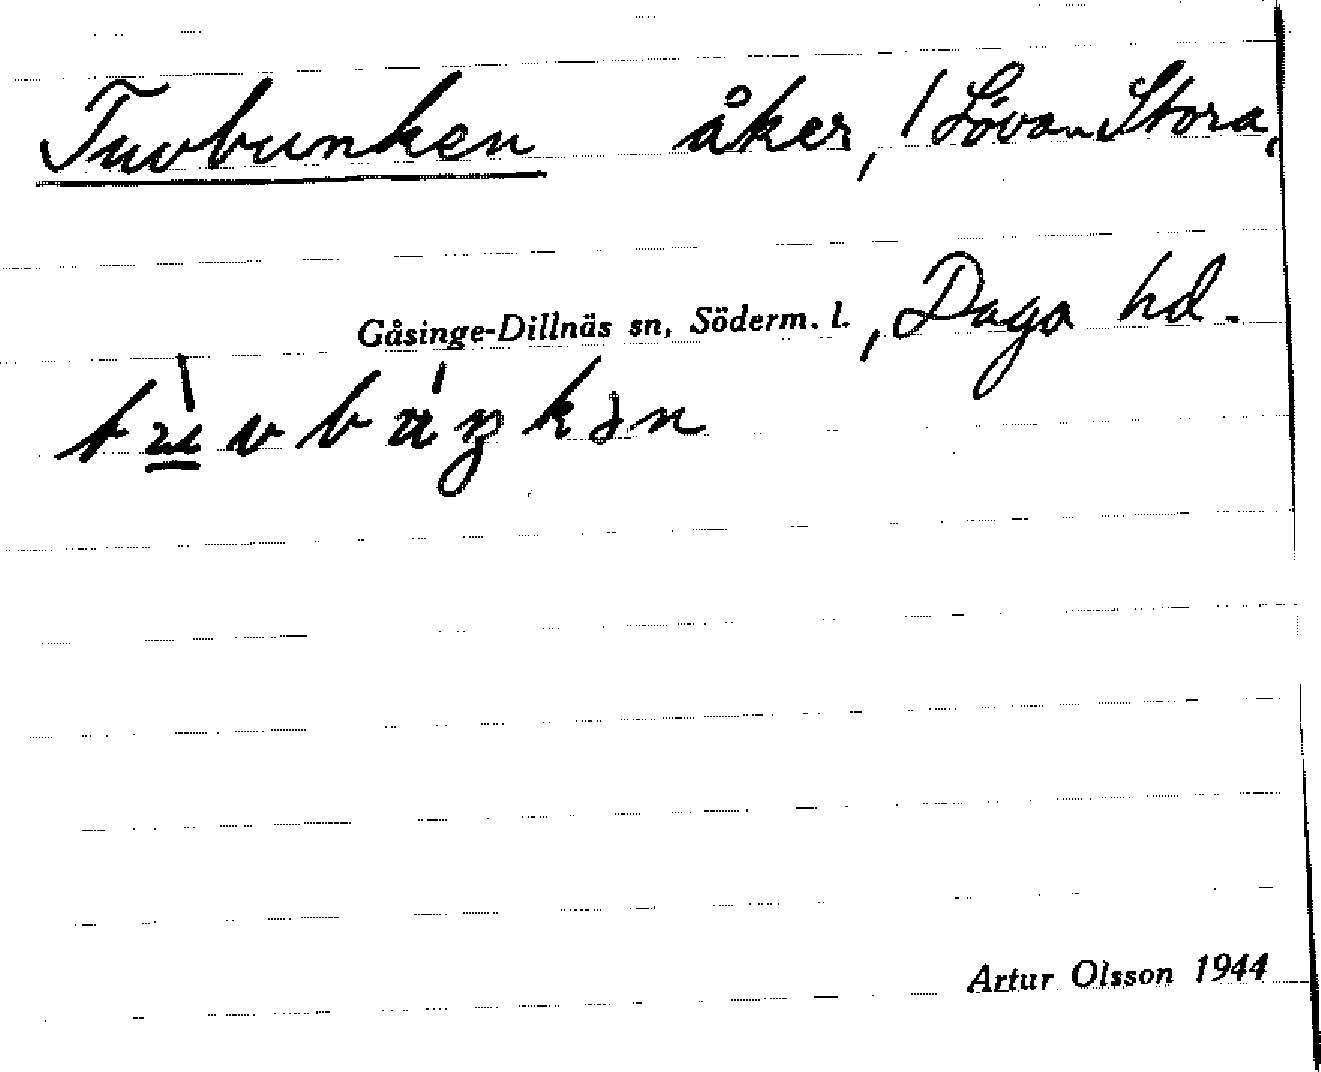 Tuvbunken åker, / Lövan Stora,
Gåsinge-Dillnäs sn, Söderm. l., Daga hd.
Artur Olsson 1944